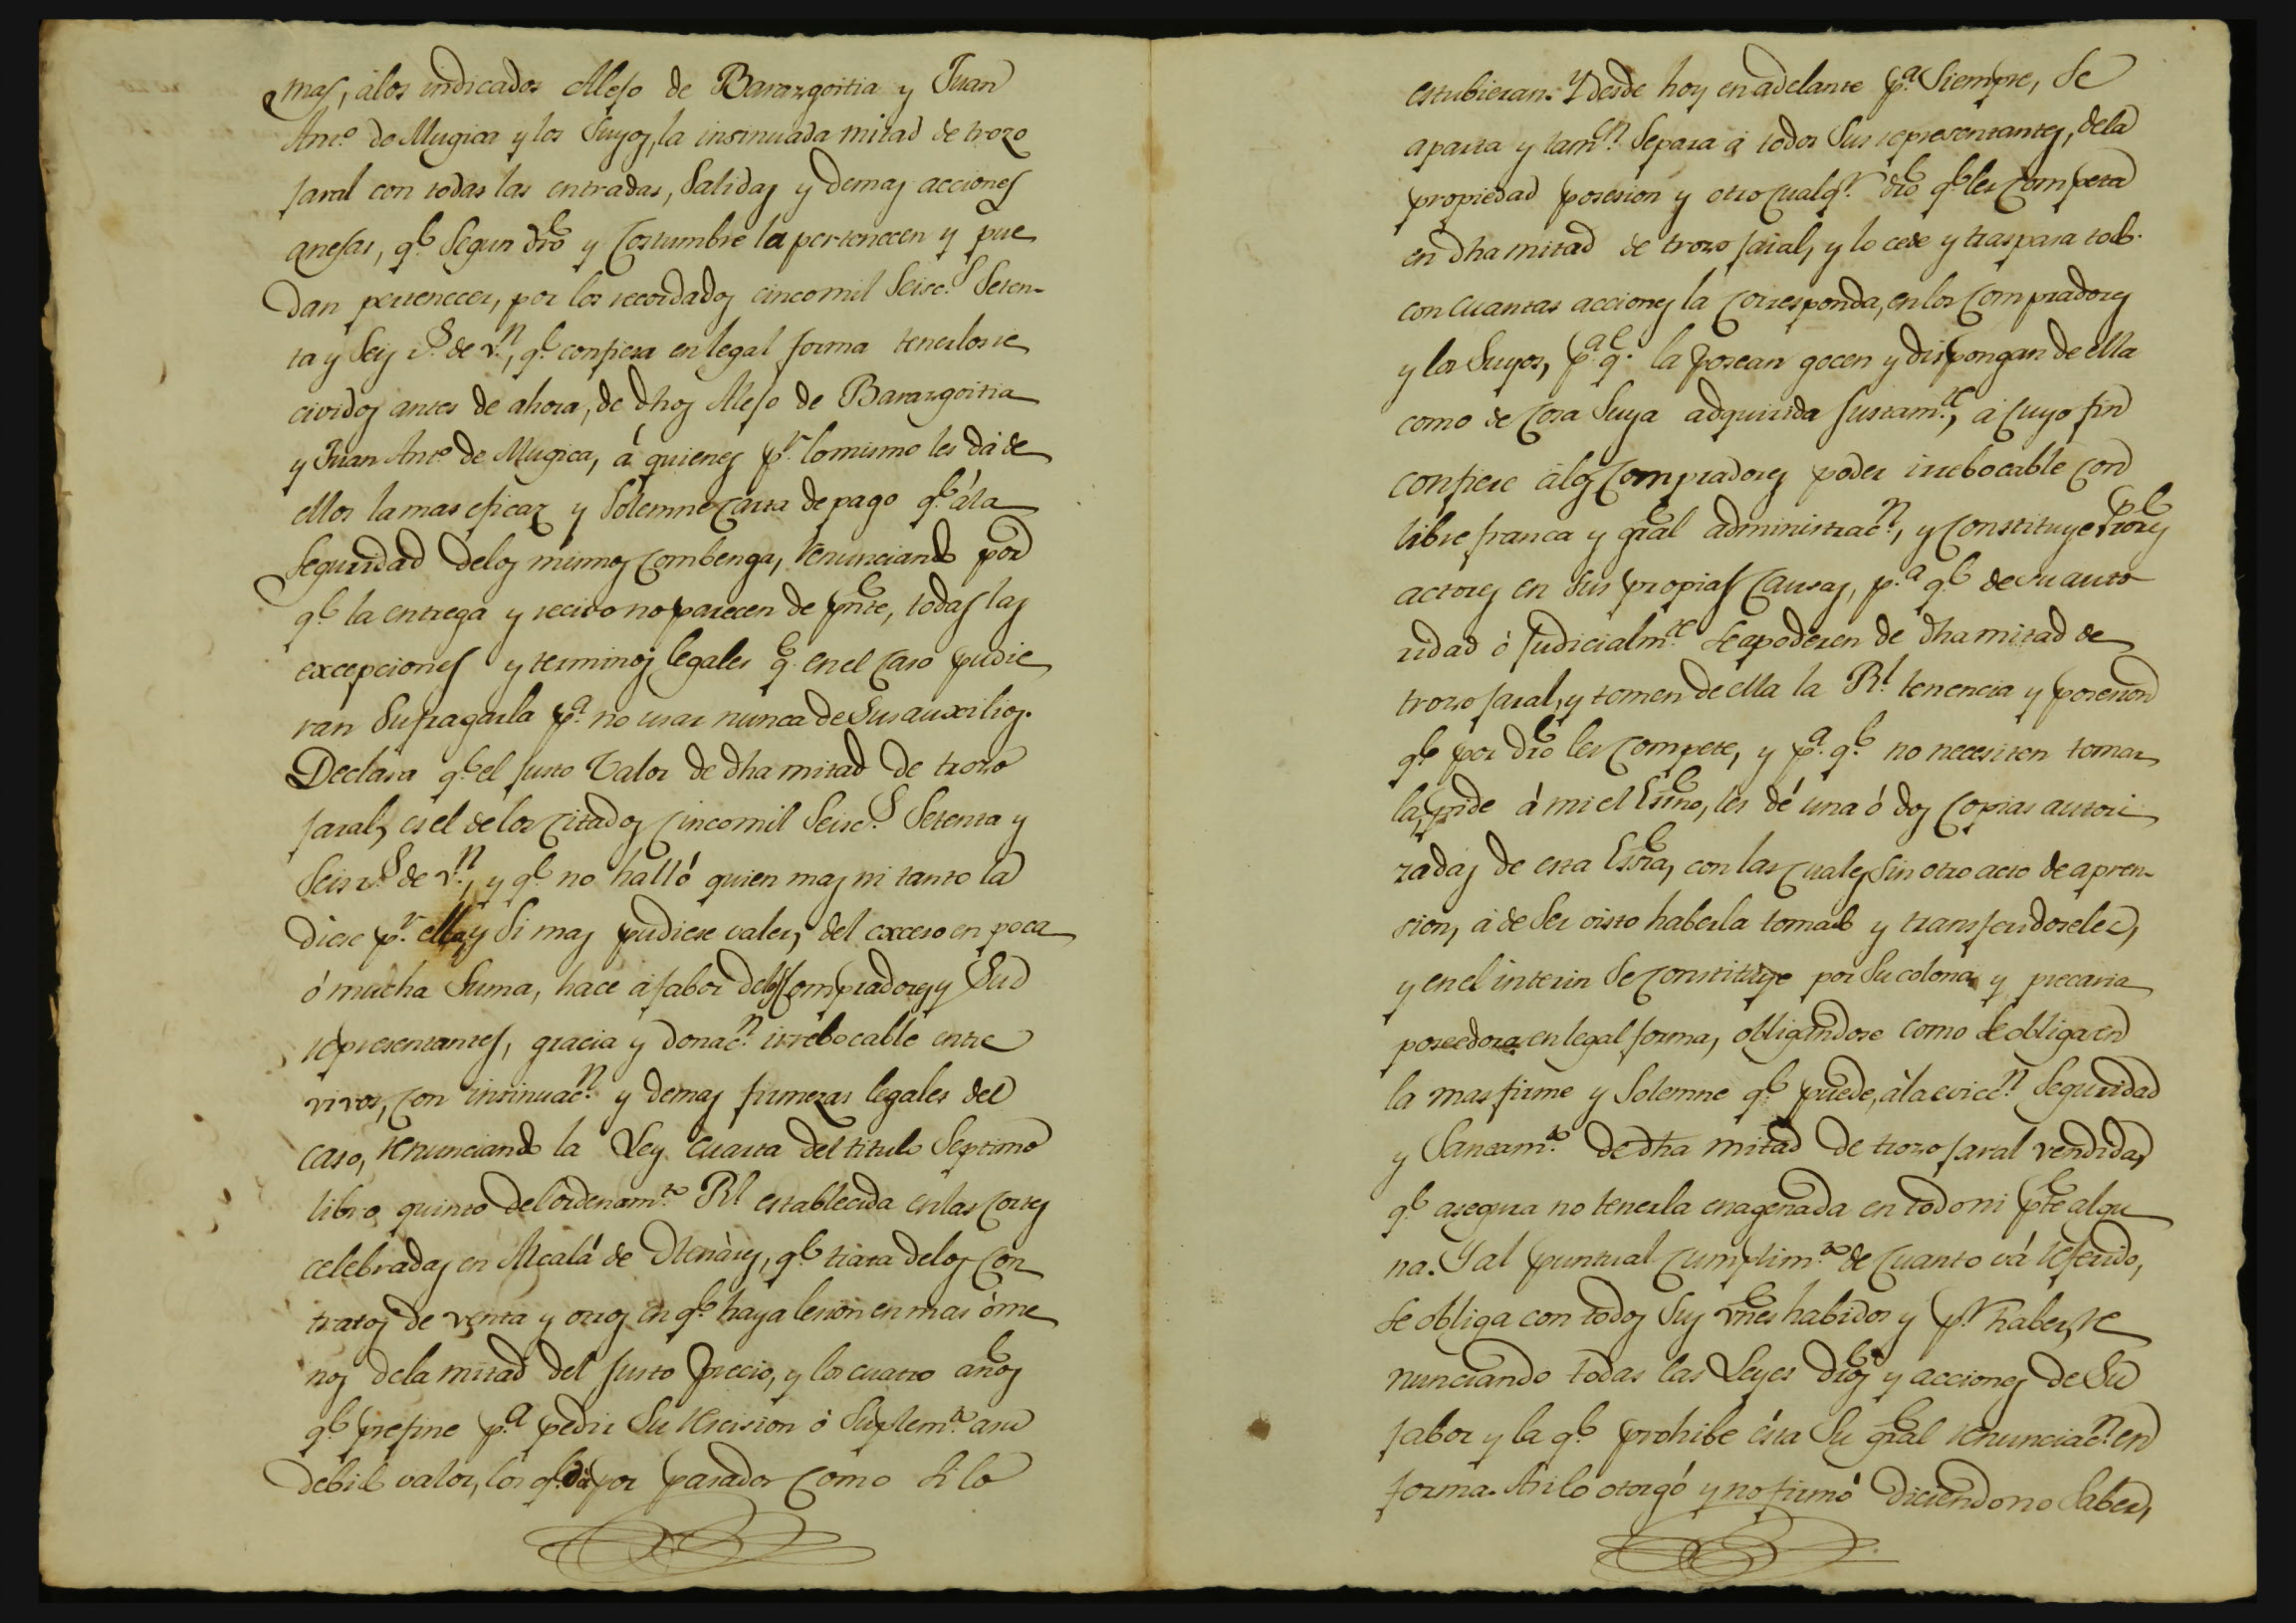 mas, álos indicados Alejo de Barazgoitia y Juan
Antº de Mugica y los Suyos, la insinuada mitad de trozo
jaral con todas las entradas, Salidas y demas acciones
anejas, qe Segun dro y Costumbre la pertenecen y pue
dan pertenecer, por los recordados cincomil Seiscs Seten-
ta y Seis rs de vn, qe confiesa en legal forma tenerlos re
cividos antes de ahora, de dhos Alejo de Barazgoitia
y Juan Antº de Mugica, á quienes pr lo mismo les dá de
ellos la mas eficaz y Solemne Carta de pago qe ála
Seguridad delos mismos Combenga, renunciando por
qe la entrega y recivo no parecen de pnte, todas las
excepciones y terminos legales qe en el Caso pudie
ran Sufragarla pa no usar nunca de Sus auxilios.
Declara qe el justo Valor de dha mitad de trozo
jaral, es el de los Citados Cincomil Seiscs Setenta y
Seis rs de vn, y qe no halló quien mas ni tanto la
diese pr ella, y Si mas pudiese valer, del exceso en poca
ó mucha Suma, hace á fabor delos Compradores y Sus
representantes, gracia y donacn irrebocable entre
vivos, Con insinuacn y demas firmezas legales del
caso, renunciando la Ley cuarta del titulo Septimo
libro quinto del ordenamto Rl establecida en las Cortes
celebradas en Alcalá de Henáres, qe trata delos Con
tratos de venta y otros en qe haya lesion en mas óme
nos dela mitad del justo precio, y los cuatro años
qe prefine pa pedir Su rescision ó Suplemto asu
debido valor, los qe dá por pasados Como Si lo
estubieran. Y desde hoy en adelante pa Siempre, Se
aparta y tamn Separa á todos Sus representantes, dela
propiedad posesion y otro Cualqr dro qe les Competa
en dha mitad de trozo jaral, y lo cede y traspasa todo
con cuantas acciones la Corresponda, en los Compradores
y los Suyos, pa qe la posean gocen y dispongan de ella
como de Cosa Suya adquirida justamte, á Cuyo fin
confiere álos Compradores poder irrebocable Con
libre franca y gral administracn, y Constituye Prores
actores en Sus propias Causas, pa qe de Su auto
ridad ó judicialmte Se apoderen de dha mitad de
trozo jaral, y tomen de ella la Rl tenencia y posesion
qe por dro les Compete, y pa qe no necesiten tomar
la, pide á mi el Esno, les dé una ó dos Copias autori
zadas de esta Esra, con las Cuales Sin otro acto de apren-
sion, á de Ser visto haberla tomado y transferidoseles,
y en el interin Se Constituye por Su colona y precaria
poseedora en legal forma, obligandose como Se obliga en
la mas firme y Solemne qe puede, ála eviccn Seguridad
y Saneamto de dha mitad de trozo jaral vendida,
qe asegura no tenerla enagenada en todo ni pte algu
na. Y al puntual Cumplimto de Cuanto vá referido,
Se obliga con todos Sus vnes habidos y pr haber, re
nunciando todas las Leyes dros y acciones de Su
fabor y la qe prohibe ésta Su gral renunciacn en
forma. Asi lo otorgó y no firmó diciendo no Saber,